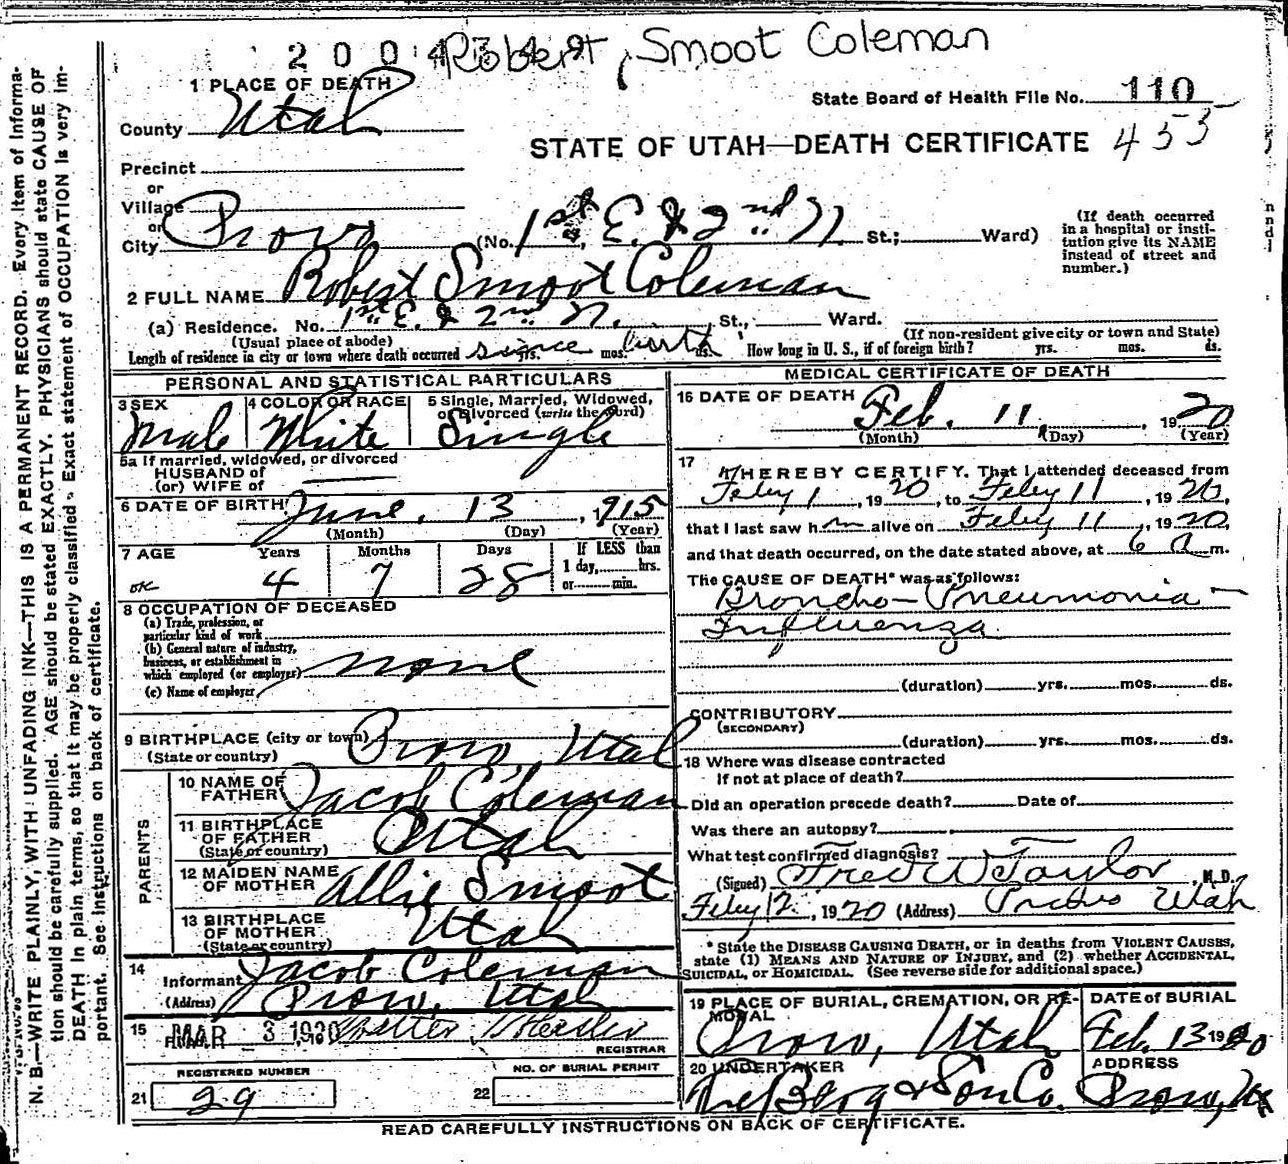 Robert Smoot Coleman
1 PLACE OF DEATH
State Board of Health File No. 110
County Utah
455
STATE OF UTAH—DEATH CERTIFICATE
Precinct
or
Village
or
City Provo (No. 1st E. & 2nd N. St.; Ward)
(If death occurred
in a hospital or insti-
tution give its NAME
instead of street and
number.)
2 FULL NAME Robert Smoot Coleman
(a) Residence. No. 1st E. & 2nd N. St., Ward.
(Usual place of abode) (If non-resident give city or town and State)
Length of residence in city or town where death occurred since yrs. mos. birth ds. How long in U. S., if of foreign birth? yrs. mos. ds.
PERSONAL AND STATISTICAL PARTICULARS
3 SEX 4 COLOR OR RACE 5 Single, Married, Widowed,
or Divorced (write the word)
Male White Single
5a If married, widowed, or divorced
HUSBAND of
(or) WIFE of
6 DATE OF BIRTH June 13, 1915
(Month) (Day) (Year)
7 AGE Years Months Days If LESS than
1 day, hrs.
or min.
OK 4 7 28
8 OCCUPATION OF DECEASED
(a) Trade, profession, or
particular kind of work
(b) General nature of industry,
business, or establishment in
which employed (or employer) none
(c) Name of employer
9 BIRTHPLACE (city or town) Provo, Utah
(State or country)
PARENTS
10 NAME OF
FATHER Jacob Coleman
11 BIRTHPLACE
OF FATHER Utah
(State or country)
12 MAIDEN NAME
OF MOTHER Allie Smoot
13 BIRTHPLACE
OF MOTHER Utah
(State or country)
14
Informant Jacob Coleman
(Address) Provo, Utah
15 MAR 3 1920
REGISTRAR
REGISTERED NUMBER NO. OF BURIAL PERMIT
21 29 22
MEDICAL CERTIFICATE OF DEATH
16 DATE OF DEATH Feb. 11, 1920
(Month) (Day) (Year)
17 I HEREBY CERTIFY, That I attended deceased from
Feby 1, 1920, to Feby 11, 1920,
that I last saw him alive on Feby 11, 1920,
and that death occurred, on the date stated above, at 6 a m.
The CAUSE OF DEATH* was as follows:
Broncho-Pneumonia-
Influenza
(duration) yrs. mos. ds.
CONTRIBUTORY
(SECONDARY)
(duration) yrs. mos. ds.
18 Where was disease contracted
If not at place of death?
Did an operation precede death? Date of
Was there an autopsy?
What test confirmed diagnosis?
(Signed) Fred W Taylor, M.D.
Feby 12, 1920 (Address) Provo Utah
* State the DISEASE CAUSING DEATH, or in deaths from VIOLENT CAUSES,
state (1) MEANS AND NATURE OF INJURY, and (2) whether ACCIDENTAL,
SUICIDAL, or HOMICIDAL. (See reverse side for additional space.)
19 PLACE OF BURIAL, CREMATION, OR RE-
MOVAL
Provo, Utah
DATE of BURIAL
Feb. 13 1920
20 UNDERTAKER
Berg & Son Co.
ADDRESS
Provo, Ut
READ CAREFULLY INSTRUCTIONS ON BACK OF CERTIFICATE.
N. B.—WRITE PLAINLY, WITH UNFADING INK—THIS IS A PERMANENT RECORD. Every item of informa-
tion should be carefully supplied. AGE should be stated EXACTLY. PHYSICIANS should state CAUSE OF
DEATH in plain terms, so that it may be properly classified. Exact statement of OCCUPATION is very im-
portant. See instructions on back of certificate.